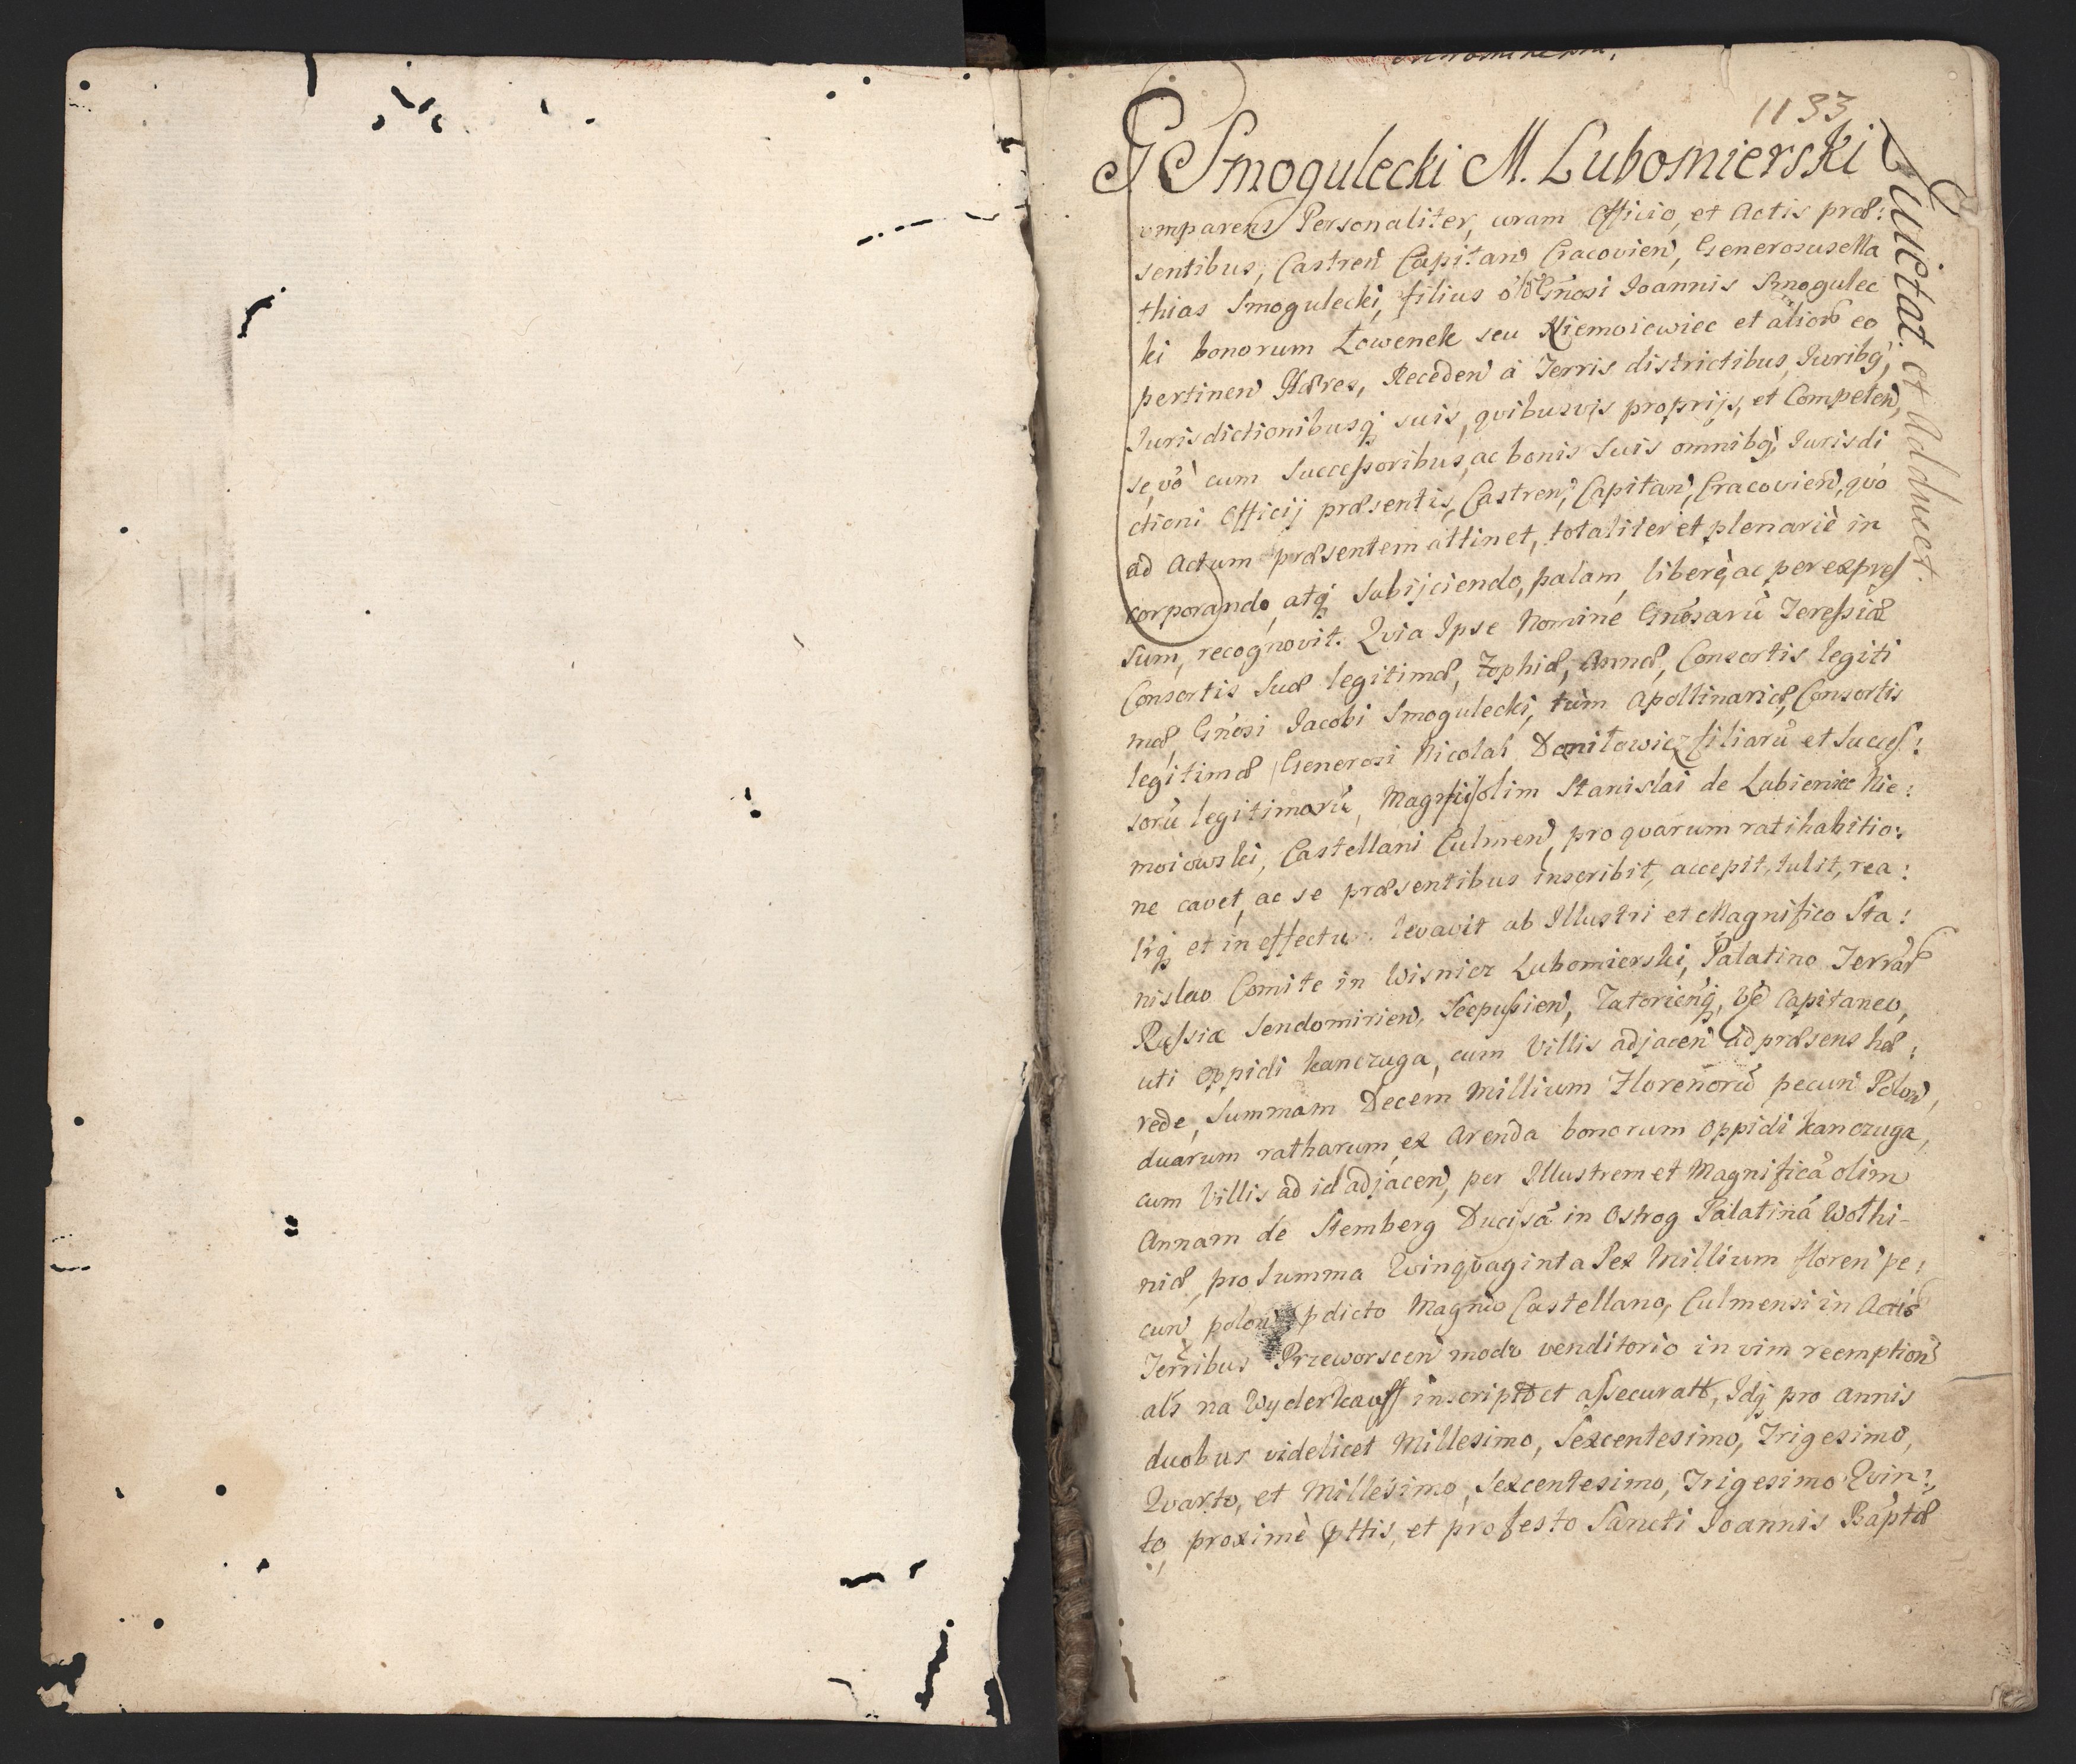 1133
G Smogulecki M. Lubomierski
Quietat. et Admet.
omparens Personaliter, coram Officio, et Actis præ:
sentibus, Castren̄ Capitan̄ Cracovien̄, Generosus Ma
thias Smogulecki, filius olī Gn̄osi Joannis Smogulec
ki bonorum Łowenek seu Niemoiewiec et alior eo
pertinen̄ Hæres, Receden̄ à Terris districtibus, Juribq́,
Jurisdictionibusq́ suis, quibusvis proprijs, et Competen̄,
se, vō cum Successoribus, ac bonis suis omnibq́, Jurisdi
ctioni Officij præsentis, Castren̄, Capitan̄, Cracovien̄, quō
ad Actum præsentem attinet, totaliter et plenariè in
corporando, atq́ subijciendo, palam, liberè, ac per expres
sum, recognovit. Quia Ipse Nomine Gn̄osarū Teressiæ
Consortis suæ legitimæ, Zophiæ, Annæ, Consortis legiti
mæ, Gn̄osi Jacobi Smogulecki, tùm Apollinariæ, Consortis
legitimæ, Generosi Nicolai Daniłowicz filiarū et Succes:
sorū legitimarū, Magnifi olim Stanislai de Lubieniec Nie:
moiowski, Castellani Culmen̄, pro quarum ratihabitio:
ne cavet, ac se præsentibus inscribit, accepit, tulit, rea:
lrq́ et in effectu levavit ab Illustri et Magnifico Sta:
nislao Comite in Wisnicz Lubomierski, Palatino Terrar
Russiæ Sendomirien̄, Scepusien̄, Zatorien̄q́, Capitaneo,
uti Oppidi Kanczuga, cum Villis adjacen̄ ad præsens hæ:
rede, Summam Decem Millium Florenorū pecun̄ Polon̄,
duarum ratharum, ex Arenda bonorum Oppidi Kanczuga,
cum Villis ad id adjacen̄, per Illustrem et Magnificā olim
Annam de Stemberg Ducissā in Ostrog Palatinā Wołhi-
niæ, pro Summa Quinquaginta Sex Millium floren̄ pe:
cun̄ polon̄ pdicto Magn̄co Castellano, Culmensi in Actis
Terribus Przeworscen̄ modo venditorio in vim reemption̄
als na Wyderkauff inscripto et assecurato, Idq́ pro annis
duobus videlicet Millesimo, Sexcentesimo, Trigesimo,
Quarto, et Millesimo, Sexcentesimo, Trigesimo Quin:
to, proximè pttis, et pro festo Sancti Joannis Baptæ